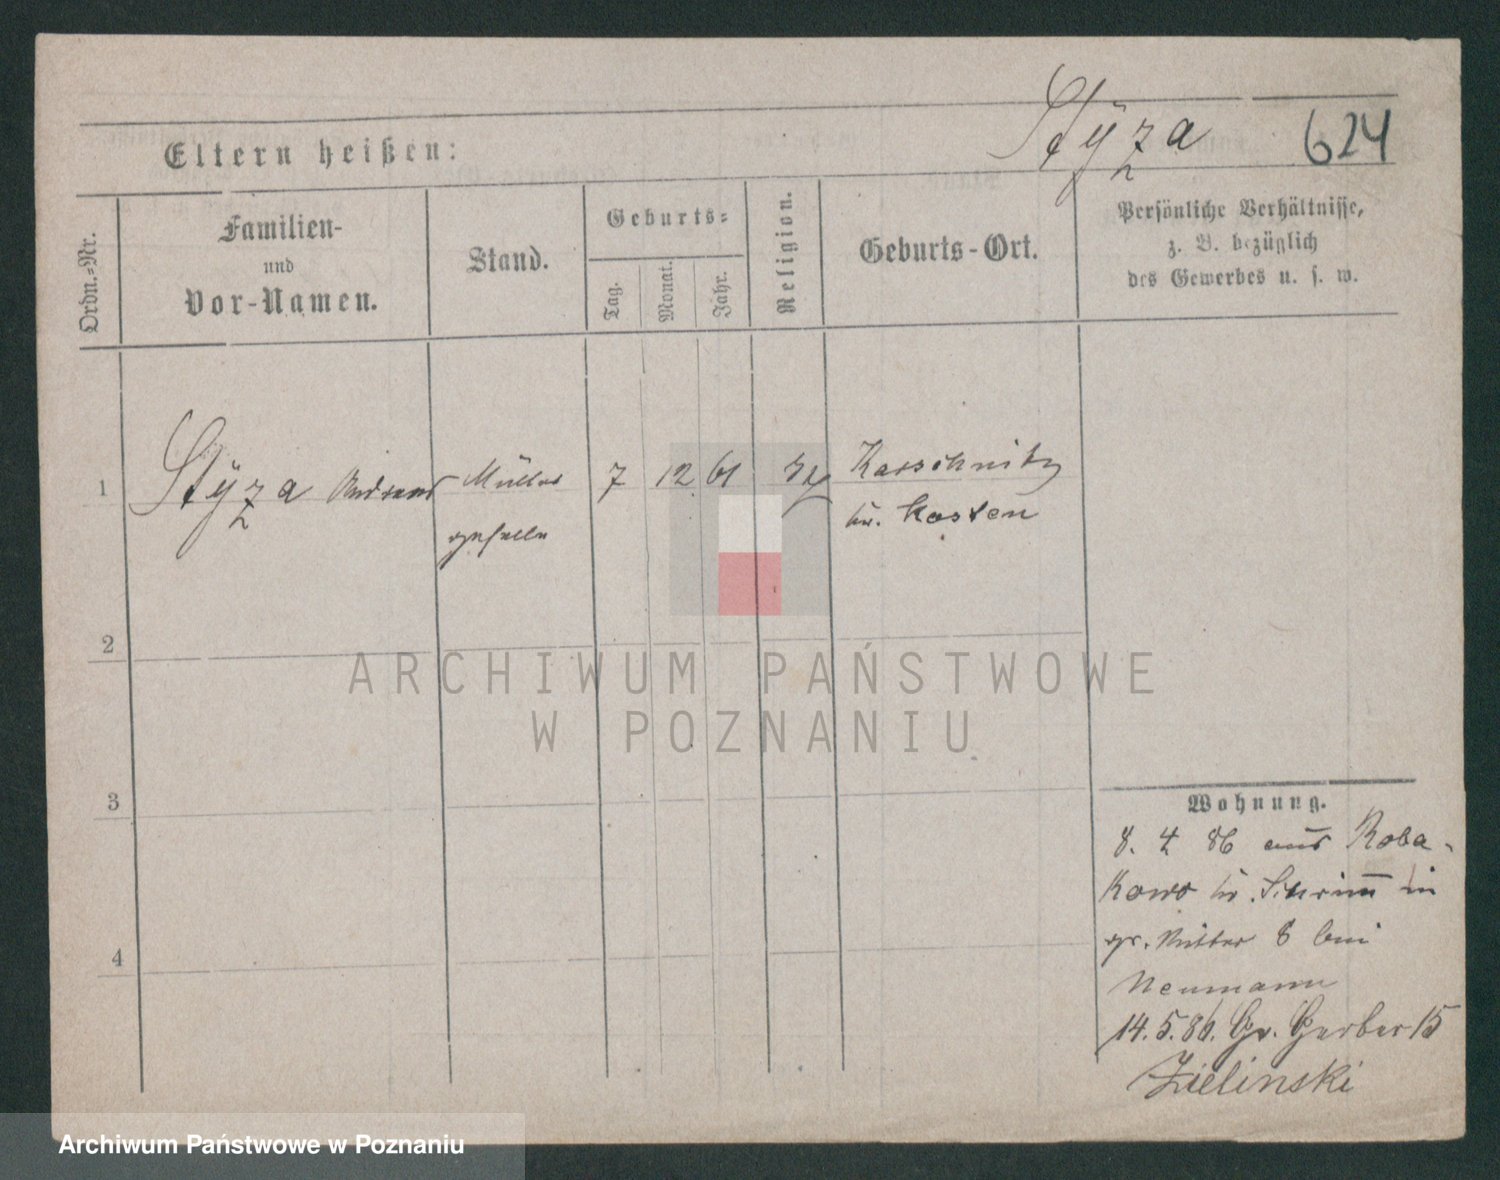 Styza 624
Eltern heißen:
Ordn.=Nr.
Familien-
und
Vor-Namen.
Stand.
Geburts=
Tag.
Monat.
Jahr.
Religion.
Geburts-Ort.
Persönliche Verhältnisse,
z. B. bezüglich
des Gewerbes u. s. w.
1 Styza Andreas Müller 7 12 61 Karschnitz
geselle Kr. Kosten
2
3
4
Wohnung.
8. 4 86 aus Roba-
kowo Kr. Schrim̅ in
gr. Ritter 8 bei
Neumann
14.5.86. Gr. Gerber 15
Zielinski
ARCHIWUM PAŃSTWOWE
W POZNANIU
Archiwum Państwowe w Poznaniu